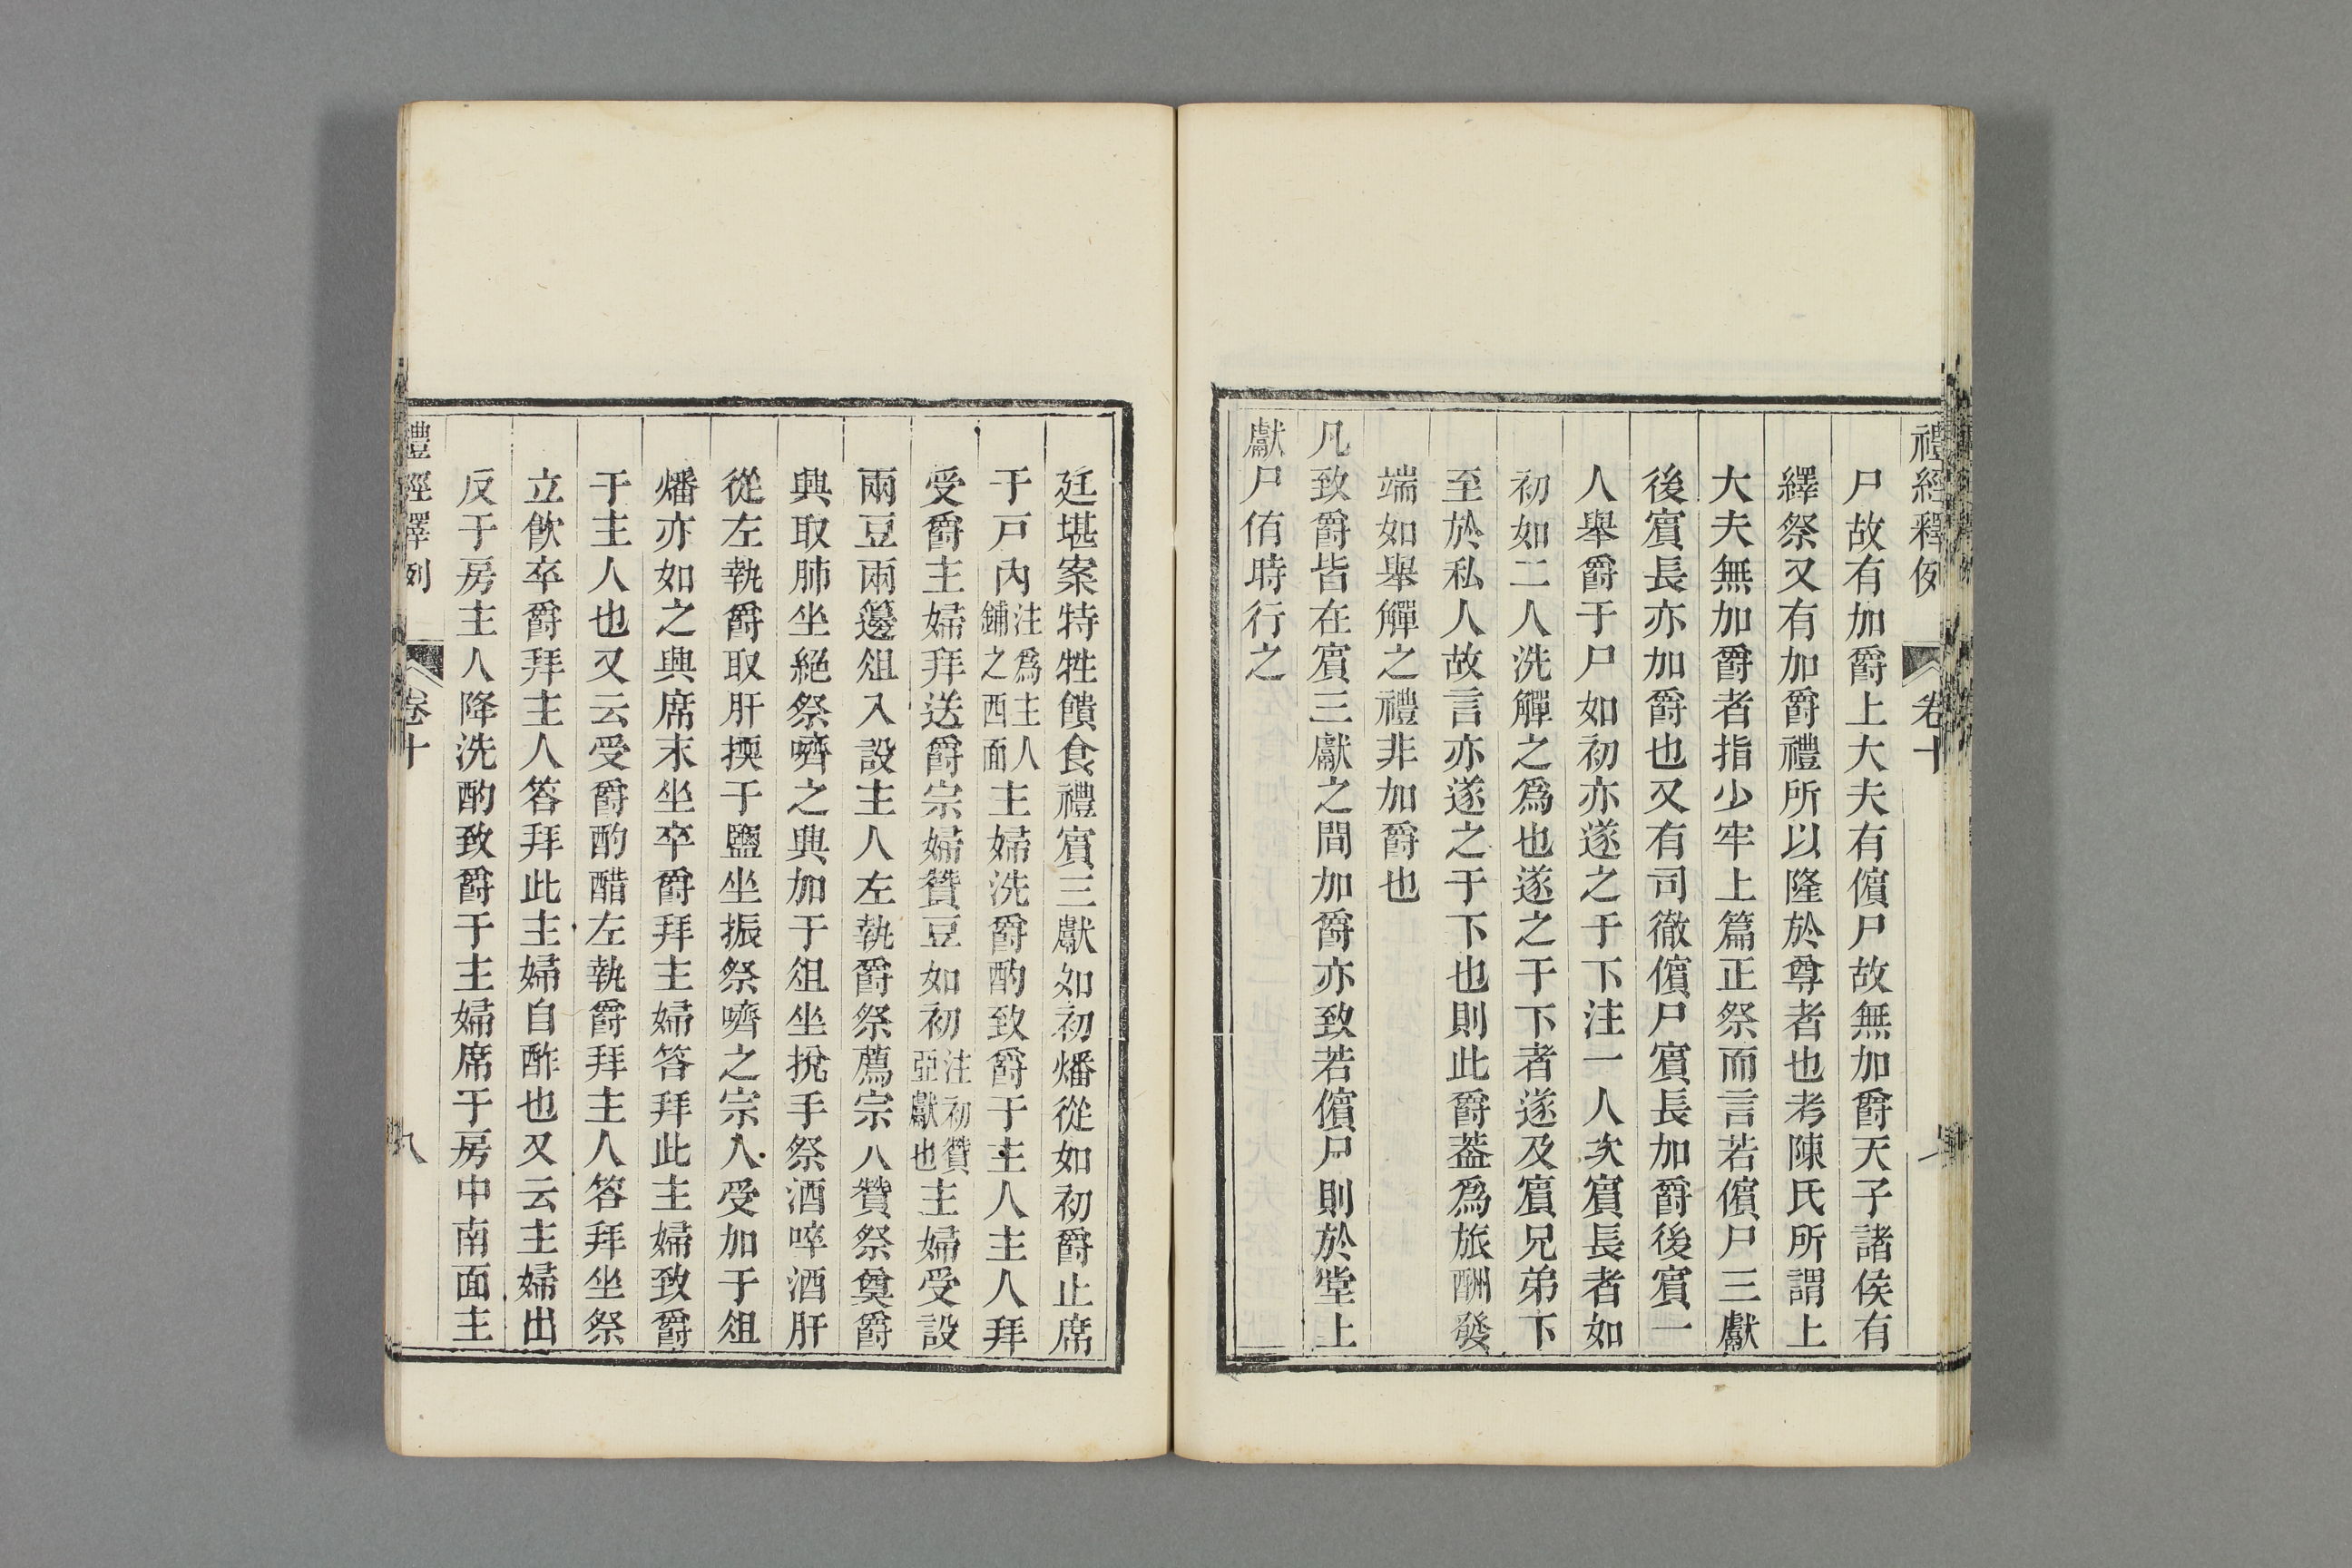 禮經釋例 卷十
尸故有加爵上大夫有儐尸故無加爵天子諸侯有
繹祭又有加爵禮所以隆於尊者也考陳氏所謂上
大夫無加爵者指少牢上篇正祭而言若儐尸三獻
後賔長亦加爵也又有司徹儐尸賔長加爵後賔一
人舉爵于尸如初亦遂之于下注一人次賔長者如
初如二人洗觶之爲也遂之于下者遂及賔兄弟下
至於私人故言亦遂之于下也則此爵葢爲旅酬發
端如舉觶之禮非加爵也
凡致爵皆在賔三獻之間加爵亦致若儐尸則於堂上
獻尸侑時行之
廷堪案特牲饋食禮賔三獻如初燔從如初爵止席
于戸內注爲主人鋪之西面主婦洗爵酌致爵于主人主人拜
受爵主婦拜送爵宗婦贊豆如初注初贊亞獻也主婦受設
兩豆兩籩俎入設主人左執爵祭薦宗人贊祭奠爵
興取肺坐絕祭嚌之興加于俎坐挩手祭酒啐酒肝
從左執爵取肝擩于鹽坐振祭嚌之宗人受加于俎
燔亦如之興席末坐卒爵拜主婦答拜此主婦致爵
于主人也又云受爵酌醋左執爵拜主人答拜坐祭
立飮卒爵拜主人答拜此主婦自酢也又云主婦出
反于房主人降洗酌致爵于主婦席于房中南面主
禮經釋例 卷十 八